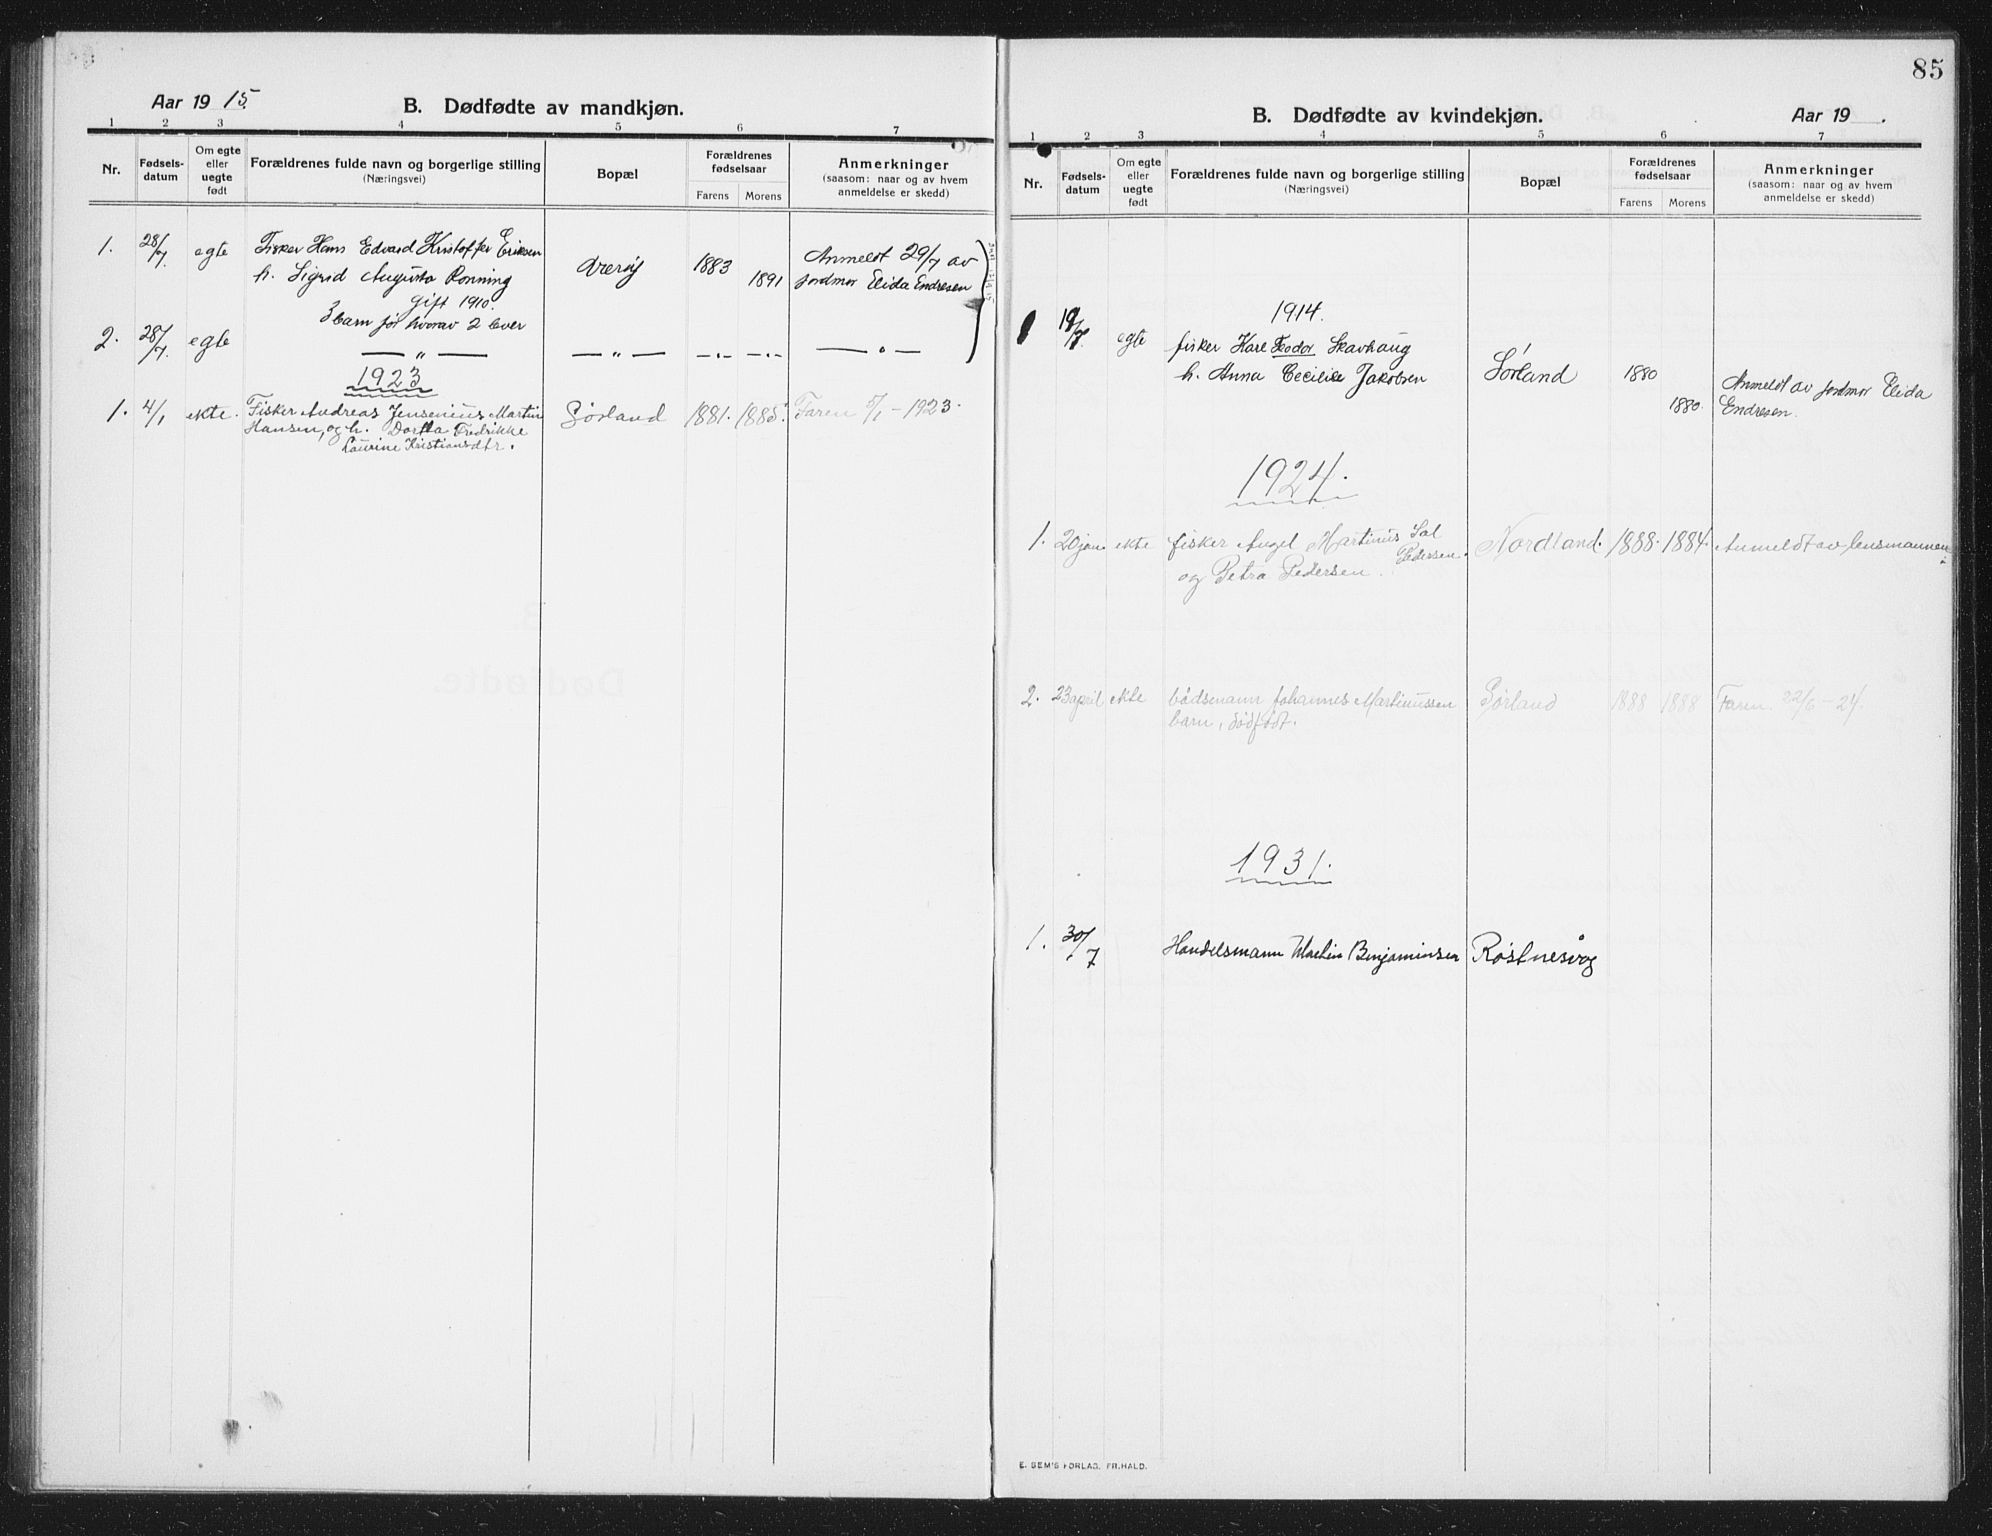 Aar 1915. B. Dødfødte av mandkjøn.
1 2 3 4 5 6 7
Nr. Fødsels-datum Om egte eller uegte født Forældrenes fulde navn og borgerlige stilling (Næringsvei) Bopæl Forældrenes fødselsaar Farens Morens Anmerkninger (saasom: naar og av hvem anmeldelse er skedd)
1. 28/7. egte Fisker Hans Edvard Kristoffer Eriksen 1883 Anmeldt 29/7 av
h. Sigrid Augusta Rønning 1891 jordmor Elida Endresen
gift 1910.
3 barn før hvorav 2 lever
2. 28/7. egte — „ — — „ — -„- -„- — „ —
1923
1. 4/1 ekte. Fisker Andreas Jensenius Martin Sørland 1881. 1885. Faren 5/1 – 1923.
Hansen, og h. Fredrikke
Laurine Kristiansdtr.
85
B. Dødfødte av kvindekjøn. Aar 19 .
1 2 3 4 5 6 7
Nr. Fødsels-datum Om egte eller uegte født Forældrenes fulde navn og borgerlige stilling (Næringsvei) Bopæl Forældrenes fødselsaar Farens Morens Anmerkninger (saasom: naar og av hvem anmeldelse er skedd)
1914.
egte fisker Karl Teodor Skavhaug Sørland 1880 Anmeldt av jordmor Elida
h. Anna Cecilie Jakobsen 1880. Endresen.
1924.
1. 20 jan. ekte fisker Angel Martinus Sal Pedersen. Nordland. 1888. 1884. Anmeldt av lensmannen.
og Petra Pedersen.
2. 23 april ekte bådsmann Johannes Martinussen Sørland 1888 1888 Faren. 22/6 – 24.
barn, dødfødt.
1931.
1. 30/7 Handelsmann Martin Benjaminsen Røstnesvåg
E. SEM'S FORLAG. FR.HALD.